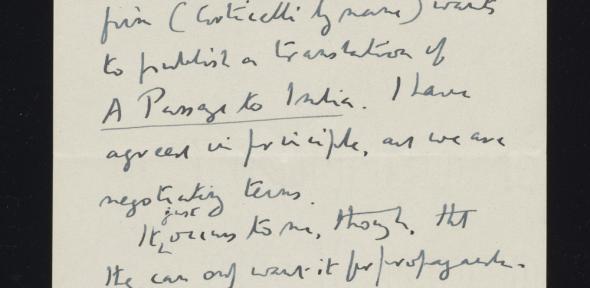 firm (Corticelli by name) wants
to publish a translation of
A Passage to India. I have
agreed in principle, and we are
negotiating terms.
just
It occurs to me, though, tht
He can only want it for propaganda.